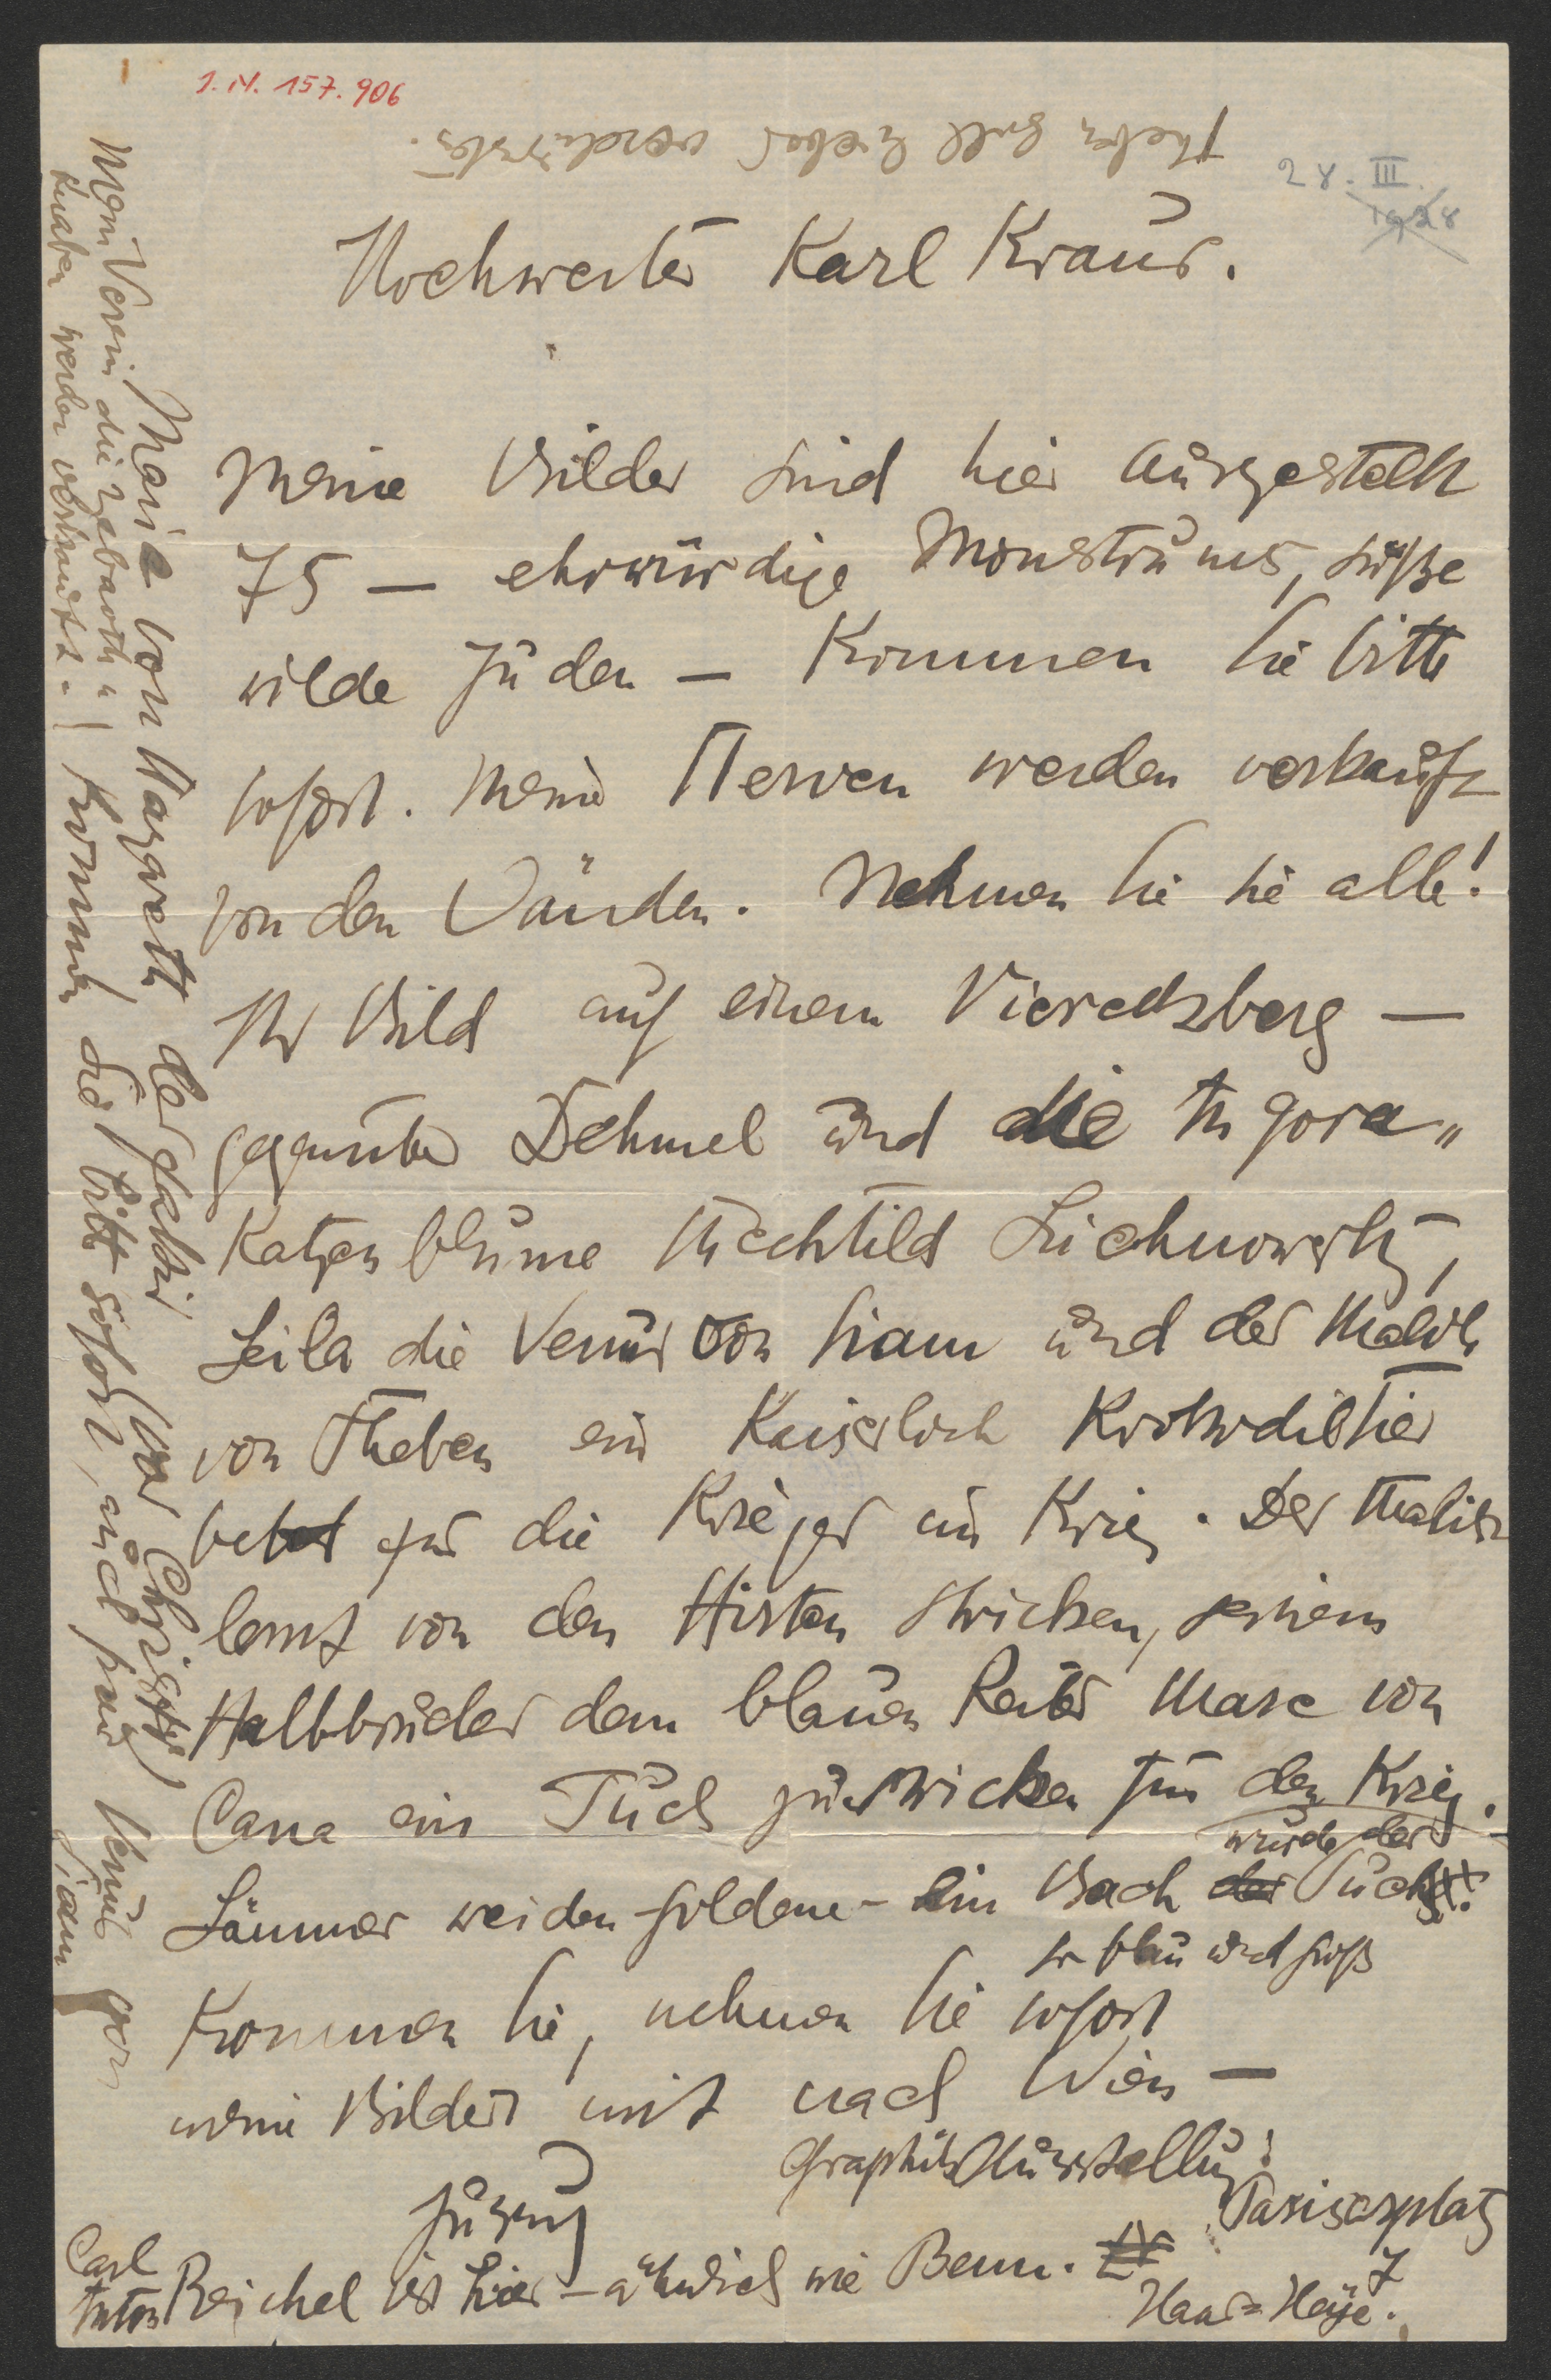 J. N. 157.906
28. III.
1928
Theben soll lieber verdursten.
Hochwerter Karl Kraus.
Meine Bilder sind hier ausgestellt
75 — ehrwürdige Monstrums, süße
wilde Juden — Kommen Sie bitte
sofort. Meine Nerven werden verkauft
von den Wänden. Nehmen Sie sie alle!
Ihr Bild auf einem Vierecksberg —
gegenüber Dehmel und die Angora„
Katzenblume Mechtild Lichnowsky,
Leila die Venus von Siam und der Malik
von Theben ein Kaiserlich Krokodiltier
betet für die Krieger im Krieg. Der Malik
lernt von den Hirten stricken, seinem
Halbbruder dem blauen Reiter Marc von
Cana ein Tuch zu stricken für den Krieg.
Lämmer weiden goldene – ein Bach wurde der Tuch
so blau und groß
Kommen Sie, nehmen Sie sofort
meine Bilder mit nach Wien —
Graphik Ausstellung:
Pariserplatz
7
Haas=Heye.
Jussuf
Carl
Anton Reichel ist hier – ähnlich wie Benn.
Maria von Nazareth der Jakobi vor Christi
Mein Verein die Zebaoth„
Knaben werden verkauft. Kommen Sie bitte sofort, auch für Venus von
Siam